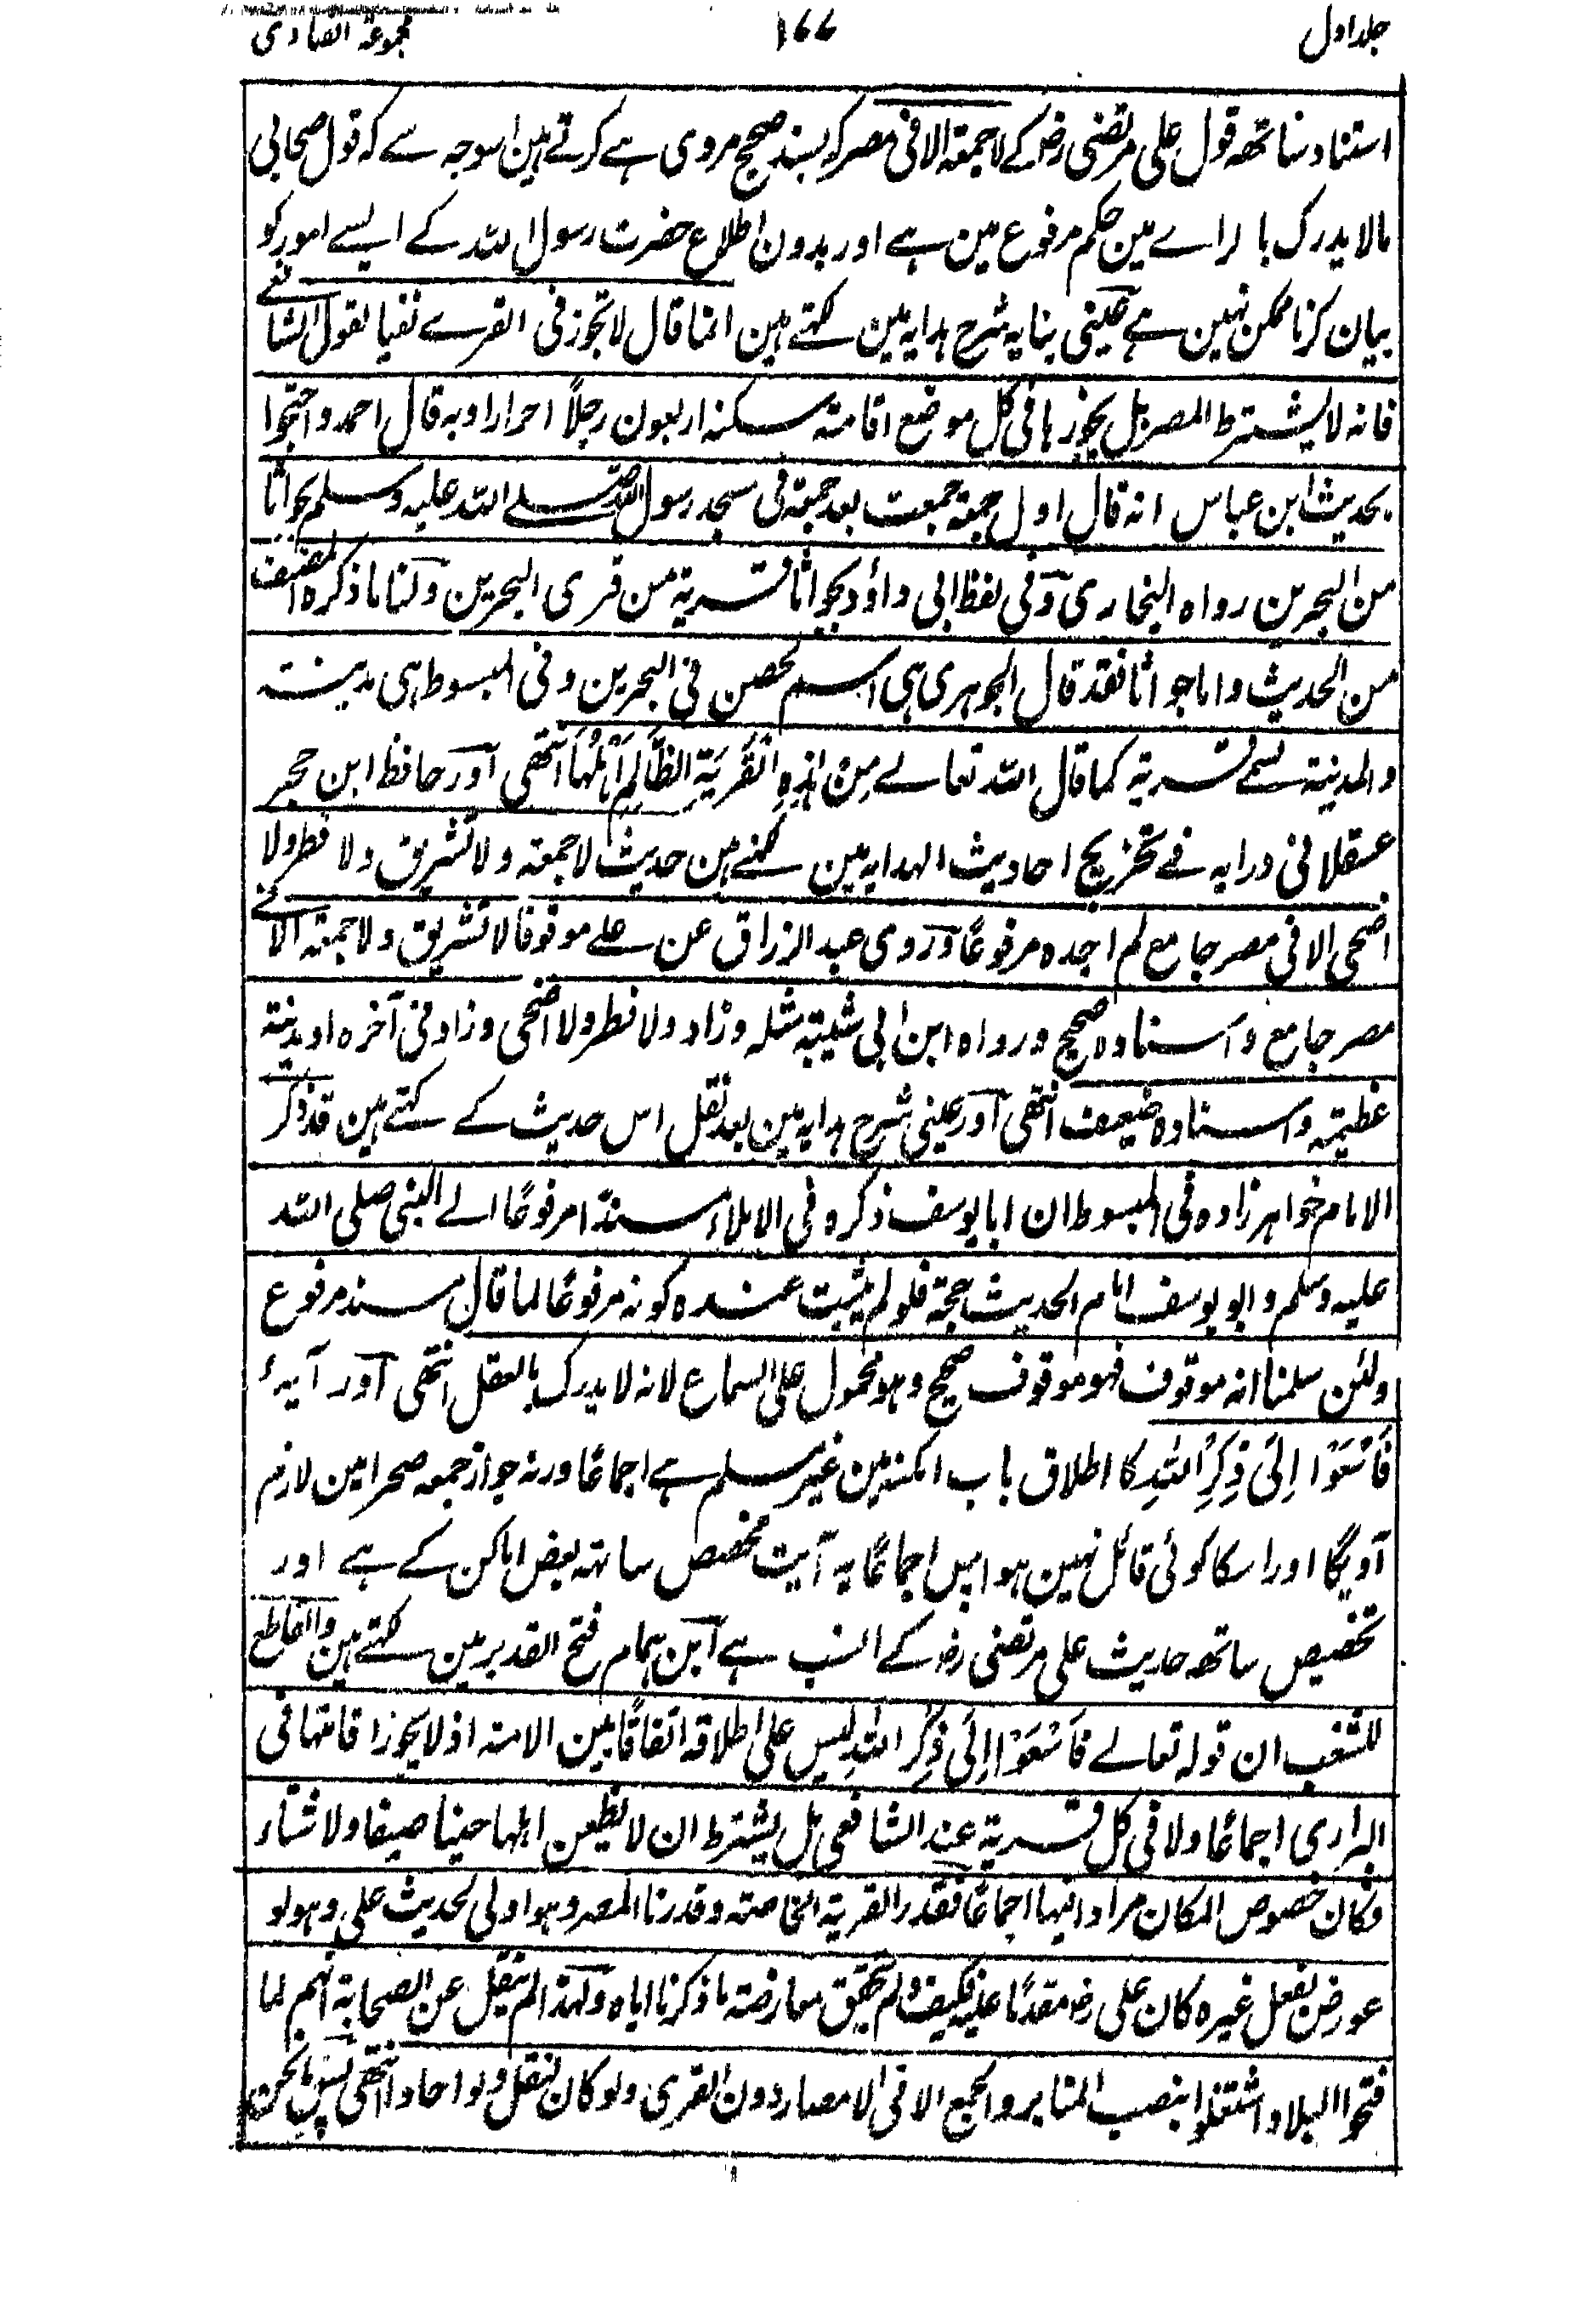 جلد اول ۱۶۷ مجموعة الفتاوى
استناد ساتھ قول علی مرتضی رضہ کے لا جمعۃ الا فی مصر کہ بسند صحیح مروی ہے کرتے ہین اسوجہ سے کہ قول صحابی
مالا یدرک بالرای مین حکم مرفوع مین ہے اور بدون اطلاع حضرت رسول اللہ کے ایسے امور کو
بیان کرنا ممکن نہین ہے عینی بنایہ شرح ہدایہ مین کہتے ہین انما قال لا تجوز فی القرے نفیا لقول الشافعے
فانہ لا یشترط المصر بل یجوزہا فی کل موضع اقامتہ سکنہ اربعون رجلاً احرارا وبہ قال احمد واحتجوا
بحدیث ابن عباس انہ قال اول جمعۃ جمعت بعد جمعۃ فی مسجد رسول اللہ صلے اللہ علیہ وسلم بجواثا
من البحرین رواہ البخاری وفی لفظ ابی داؤد بجواثا قریۃ من قری البحرین ولنا ما ذکرہ المصنف
من الحدیث واما جواثا فقد قال الجوہری ہی اسم لحصن فی البحرین وفی المبسوط ہی مدینۃ
والمدینۃ تسمے قریۃ کما قال اللہ تعالے مِنْ ہٰذِہِ الْقَرْیَۃِ الظَّالِمِ اَہْلُہَا انتھی اور حافظ ابن حجر
عسقلانی درایہ فے تخریج احادیث الہدایہ مین کہتے ہین حدیث لا جمعۃ ولا تشریق ولا فطر ولا
اضحی الا فی مصر جامع لم اجدہ مرفوعًا وروی عبد الرزاق عن علے موقوفا لا تشریق ولا جمعۃ الا فے
مصر جامع واسنادہ صحیح ورواہ ابن ابی شیبۃ مثلہ وزاد ولا فطر ولا اضحی وزاد فی آخرہ او مدینۃ
عظیمۃ واسنادہ ضعیف انتھی اور عینی شرح ہدایہ مین بعد نقل اس حدیث کے کہتے ہین قد ذکر
الامام خواہر زادہ فی المبسوط ان ابا یوسف ذکرہ فی الاملاء مسندًا مرفوعًا الے النبی صلی اللہ
علیہ وسلم وابو یوسف امام الحدیث حجۃ فلو لم یثبت عندہ کونہ مرفوعًا لما قال مسند مرفوع
ولئن سلمنا انہ موقوف فہو موقوف صحیح وہو محمول علی السماع لانہ لا یدرک بالعقل انتھی اور آیہٴ
فَاسْعَوْا اِلَی ذِکْرِ اللہِ کا اطلاق باب امکنہ مین غیر مسلم ہے اجماعًا ورنہ جواز جمعہ صحرا مین لازم
آویگا اور اسکا کوئی قائل نہین ہوا پس اجماعًا یہ آیت مخصص ساتھ بعض اماکن کے ہے اور
تخصیص ساتھ حدیث علی مرتضی رضہ کے انسب ہے ابن ہمام فتح القدیر مین کہتے ہین والقاطع
للشغب ان قولہ تعالے فَاسْعَوْا اِلَی ذِکْرِ اللہِ لیس علی اطلاقہ اتفاقًا بین الامۃ اذ لا یجوز اقامتہا فی
البراری اجماعًا ولا فی کل قریۃ عند الشافعی بل یشترط ان لا یظعن اہلہا عنہا صیفا ولا شتاء
فکان خصوص المکان مرادا فیہا اجماعًا فقدر القریۃ الخاصۃ وقدرنا المصر وہو اولی لحدیث علی وہو لو
عورض بفعل غیرہ کان علی رضہ مقدمًا علیہ فکیف ولم یتحقق معارضۃ ما ذکرنا ایاہ ولہذا لم ینقل عن الصحابۃ انہم لما
فتحوا البلاد اشتغلوا بنصب المنابر والجمع الا فی الامصار دون القری ولو کان لنقل ولو احادا انتھی